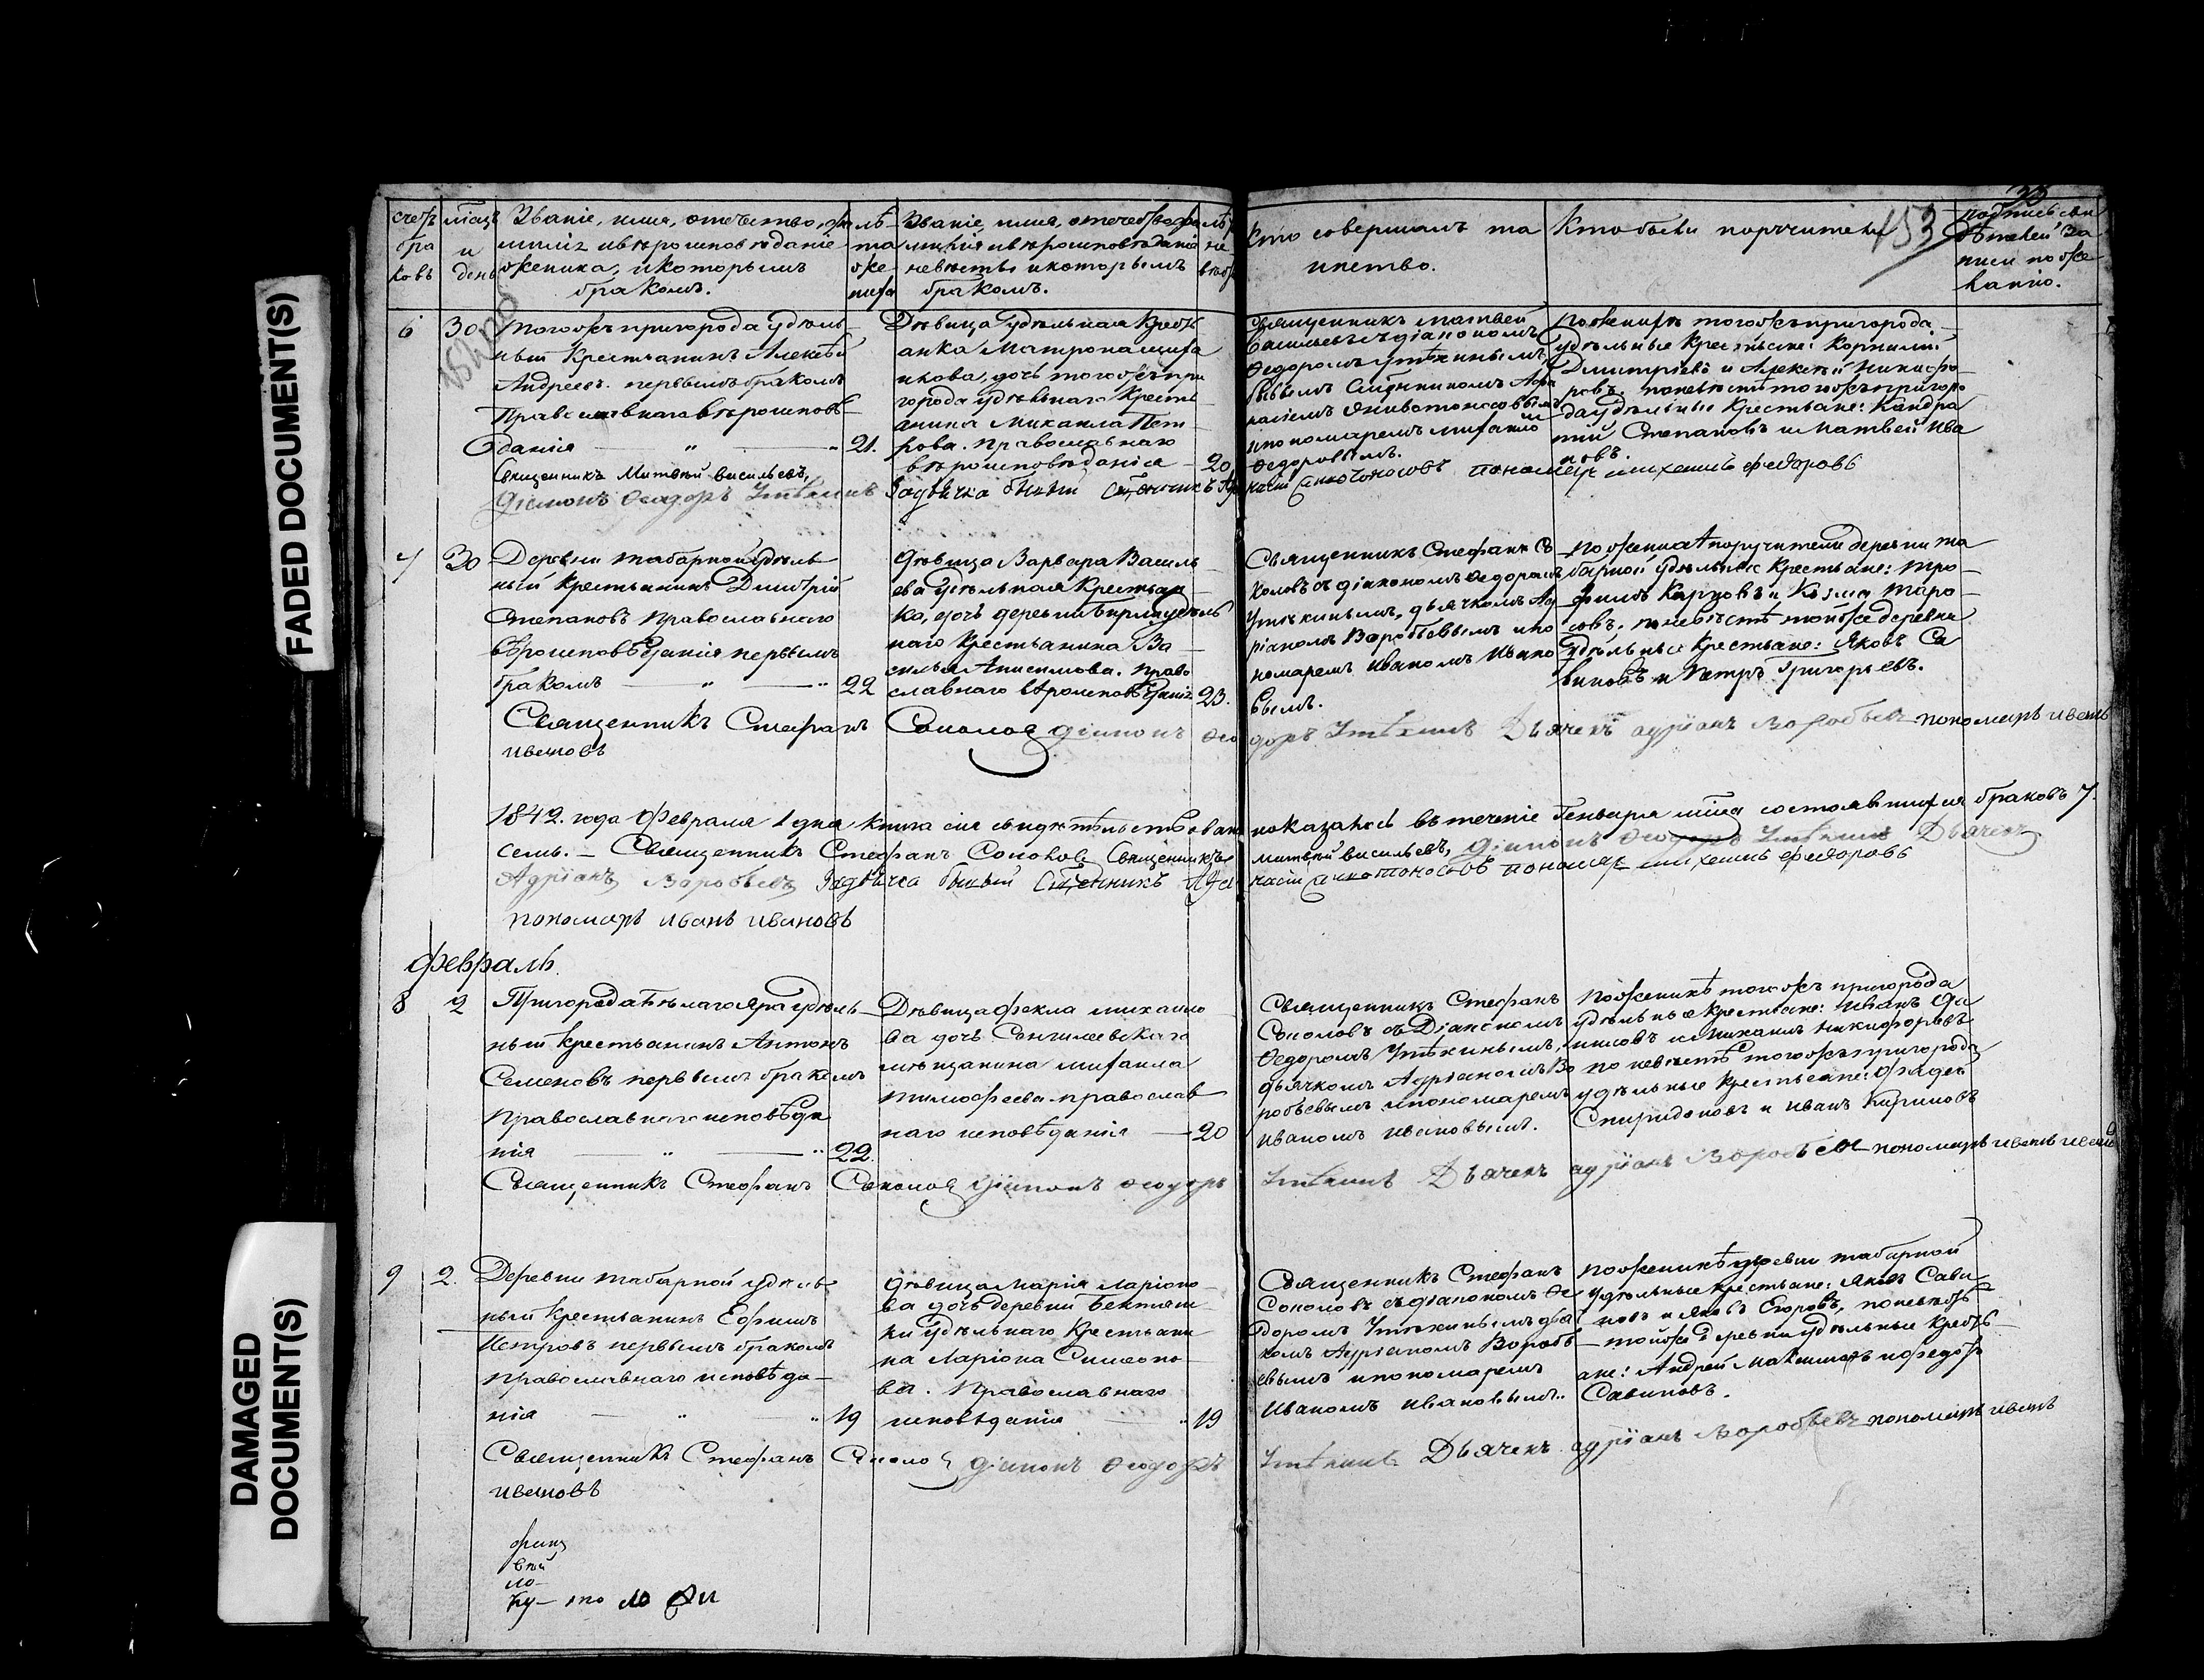 FADED DOCUMENT(S)
DAMAGED DOCUMENT(S)
счетъ бра ковъ
мѣсяцъ и день
Званіе, имя, отечество, фа
милія и вѣроисповѣданіе
жениха, и которымъ
бракомъ.
лѣ та же ниха
Званіе, имя, отечество, фа
милія и вѣроисповѣданіе
невѣсты и которымъ
бракомъ.
Кто совершалъ та
инство.
Кто были поручители
153
33
подпись сви
дѣтелей за
писи по же
ланію.
6
30
Тогожъ пригорода удѣль
ный Крестьянинъ Алексѣй
Андреевъ первымъ бракомъ
Православнаго вѣроисповѣ
данія
21.
Дѣвица Удѣльная Кресть
анка Матрона Михаи
лова, дочь тогожъ при
города удѣльнаго Кресть
анина Михаила Пет
рова. Православнаго
вѣроисповѣданія
20
Священникъ Матвей
Васильевъ съ діакономъ
Федоромъ Утѣкинымъ,
бывшимъ Священникомъ Афа
насіемъ Живоносовымъ
и пономаремъ Михаило
Федоровымъ.
По женихѣ тогожъ пригорода
удѣльные Крестьяне: Корнилій
Димитріевъ и Алексѣй Никифо
ровъ, по невѣстѣ тогожъ пригоро
да удѣльные Крестьяне: Кондра
тій Степановъ и Матвей Ива
новъ.
Священникъ Матвѣй Васильевъ,
Діаконъ Феодоръ Утѣкинъ За дьячка бывый Священникъ
пономарь Михаилъ Федоровъ
7
30
Деревни Табарной удѣль
ный Крестьянинъ Дмитрій
Степановъ Православнаго
вѣроисповѣданія первымъ
бракомъ
22
Дѣвица Варвара Василь
ева удѣльная Крестьян
ка, дочь деревни Бирли удѣль
наго Крестьянина Ва
силья Анисимова. Право
славнаго вѣроисповѣданія
23.
Священникъ Стефанъ Со
коловъ съ діакономъ Федоромъ
Утѣкинымъ, дьячкомъ Ад
ріаномъ Воробьевымъ и по
номаремъ Иваномъ Ивано
вымъ.
По женихѣ поручители деревни Та
барной удѣльные Крестьяне: Тро
фимъ Карповъ и Козма Таро
совъ, по невѣстѣ той же деревни
Удѣльные Крестьяне: Яковъ Са
виновъ и Петръ Григорьевъ.
Священникъ Стефанъ Соколовъ Діаконъ Фео
доръ Утѣкинъ Дьячекъ Адріанъ Воробьевъ пономарь Иванъ
Ивановъ
1842. года Февраля 1 дня книга сія свидѣтельствована показалось въ теченіе Генваря мѣсяца состоявшихся браковъ 7.
семь. — Священникъ Стефанъ Соколовъ Священникъ Матвѣй Васильевъ, Діаконъ Феодоръ Утѣкинъ Дьячекъ
Адріанъ Воробьевъ За дьячка бывый Священникъ
пономарь Михаилъ Федоровъ
пономарь Иванъ Ивановъ
Февраль.
8
2
Пригорода Бѣлаго Яра удѣль
ный Крестьянинъ Антонъ
Семеновъ первымъ бракомъ
Православнаго исповѣда
нія
22.
Дѣвица Фекла Михаило
ва дочь Сенгилеевскаго
мѣщанина Михаила
Тимофеева православ
наго исповѣданія
20
Священникъ Стефанъ
Соколовъ съ Діакономъ
Федоромъ Утѣкинымъ,
дьячкомъ Адріаномъ Во
робьевымъ и пономаремъ
Иваномъ Ивановымъ.
По женихѣ тогожъ пригорода
удѣльные Крестьяне: Иванъ
и Михаилъ Никифоровъ
по невѣстѣ тогожъ пригорода
удѣльные Крестьяне: Фадей
Спиридоновъ и Иванъ Кириловъ
Священникъ Стефанъ Соколовъ Діаконъ Феодоръ
Утѣкинъ Дьячекъ Адріанъ Воробьевъ пономарь Иванъ Ивановъ
9
2.
Деревни Табарной удѣль
ный Крестьянинъ Ефимъ
Петровъ первымъ бракомъ
православнаго исповѣда
нія
19
Дѣвица Марія Ларіоно
ва дочь деревни Бектяш
ки Удѣльнаго Крестьяни
на Ларіона Симеоно
ва. Православнаго
исповѣданія
19
Священникъ Стефанъ
Соколовъ съ діакономъ Фе
доромъ Утѣкинымъ дьяч
комъ Адріаномъ Воробь
евымъ и пономаремъ
Иваномъ Ивановымъ.
По женихѣ деревни Табарной
удѣльные Крестьяне: Яковъ Сави
новъ и Яковъ Егоровъ, по невѣстѣ
той же деревни удѣльные Кресть
ане: Андрей Максимовъ и Федотъ
Савиновъ.
Священникъ Стефанъ Соколовъ Діаконъ Феодоръ
Утѣкинъ Дьячекъ Адріанъ Воробьевъ пономарь Иванъ
Ивановъ